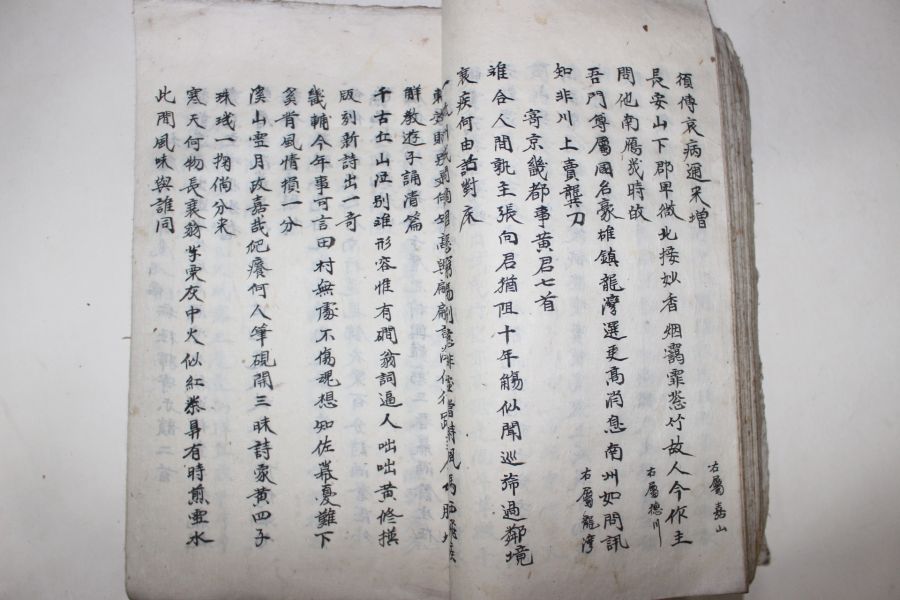 須傳哀病通来增 右屬嘉山
長安山下郡卑微北接妙香烟靄霏慈竹故人今作主
問他南鴈幾時 右屬德川
吾門尊屬國名豪雄鎮龍灣選更高消息南州如問訊
知非川上賣龔刀 右屬龍灣
寄京畿都事黃君七首
难合人間孰主張向君猶阻十年觴似聞巡斾過鄰境
衰疾何由話對床
解教遊子誦清篇
千古土山泣别难形容惟有磵翁詞逼人咄咄黄修撰
版刻新詩出一奇
畿輔今年事可言田村無處不傷魂想知佐幕憂難下
莫省風情損一分
溪山雪月政嘉哉爬癢何人筆硯開三昧詩家黄四子
珠璣一掬倘分来
寒天何物長衰翁芋栗灰中火似紅茶鼎有時煎雪水
此間風味與誰同